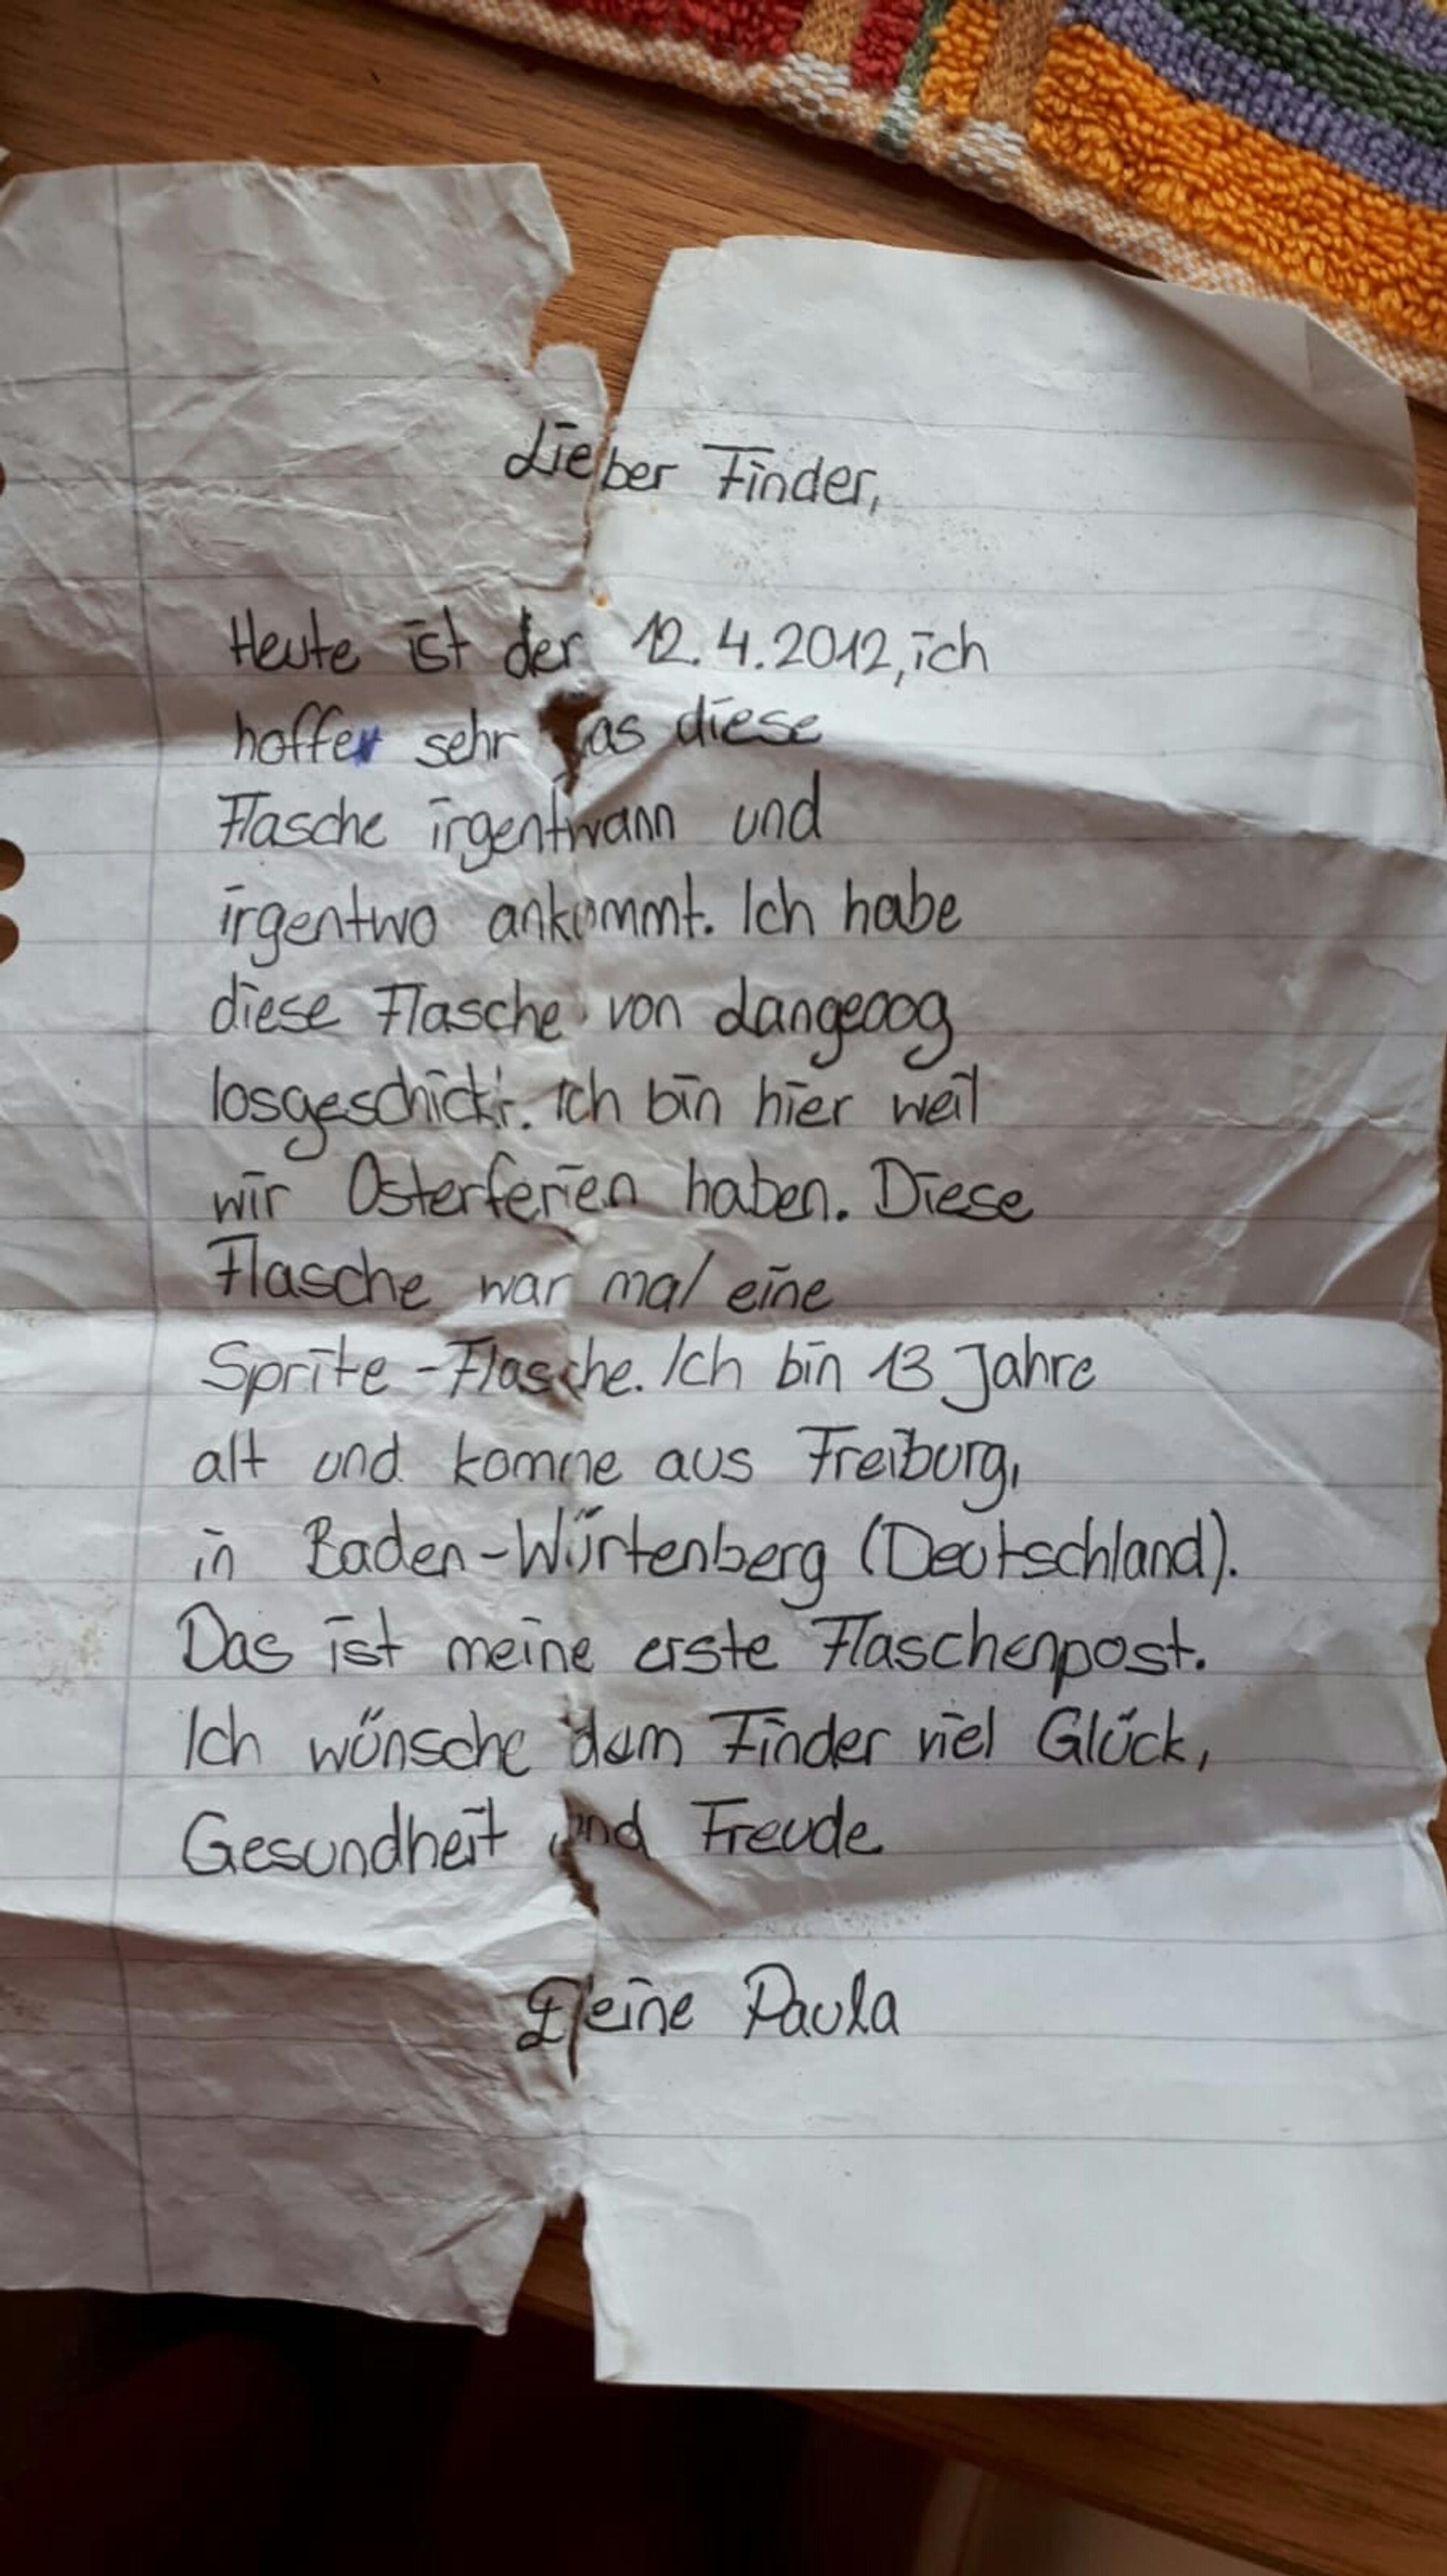 Lieber Finder,
Heute ist der 12.4.2012, ich
hoffe sehr das diese
Flasche irgentwann und
irgentwo ankommt. Ich habe
diese Flasche von Langeoog
losgeschickt. Ich bin hier weil
wir Osterferien haben. Diese
Flasche war mal eine
Sprite-Flasche. Ich bin 13 Jahre
alt und komme aus Freiburg,
in Baden-Würtenberg (Deutschland).
Das ist meine erste Flaschenpost.
Ich wünsche dem Finder viel Glück,
Gesundheit und Freude
Deine Paula